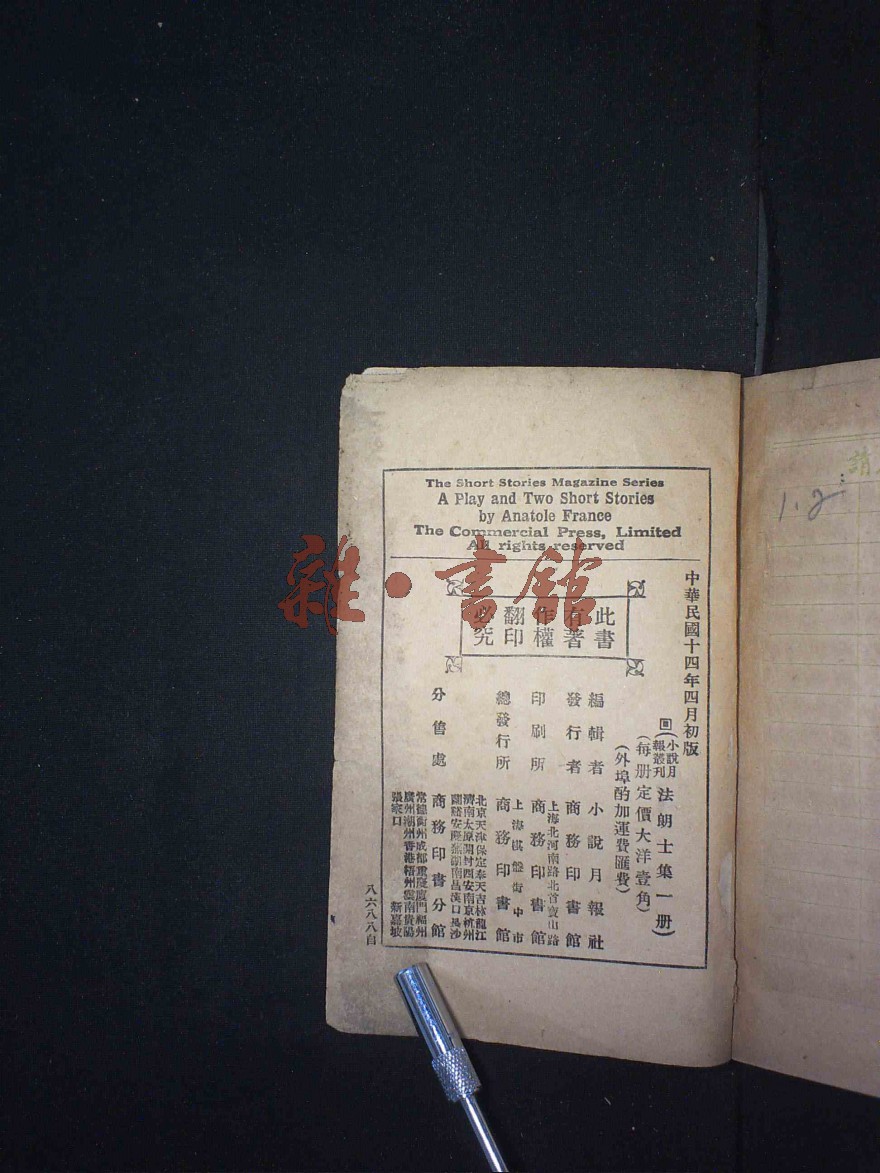 The Short Stories Magazine Series
A Play and Two Short Stories
by Anatole France
The Commercial Press, Limited
All rights reserved
此書
有著
作權
翻印
必究
中華民國十四年四月初版
小說月
報叢刊
法朗士集一册
(每册定價大洋壹角)
(外埠酌加運費匯費)
編輯者 小說月報社
發行者 商務印書館
上海北河南路北首寶山路
印刷所 商務印書館
上海棋盤街中市
總發行所 商務印書館
北京天津保定奉天吉林龍江
濟南太原開封西安南京杭州
蘭谿安慶蕪湖南昌漢口長沙
分售處 商務印書分館
常德衡州成都重慶廈門福州
廣州潮州香港梧州雲南貴陽
張家口 新嘉坡
八六八八自
雜·書館
1.2
請